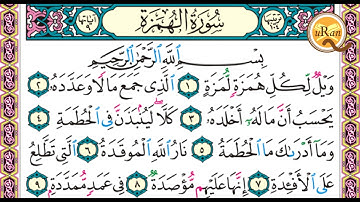 سُورَةُ الْهُمَزَةِ
بِسْمِ اللَّهِ الرَّحْمَٰنِ الرَّحِيمِ
وَيْلٌ لِّكُلِّ هُمَزَةٍ لُّمَزَةٍ ١ الَّذِي جَمَعَ مَالًا وَعَدَّدَهُ ٢
يَحْسَبُ أَنَّ مَالَهُ أَخْلَدَهُ ٣ كَلَّا لَيُنبَذَنَّ فِي الْحُطَمَةِ ٤
وَمَا أَدْرَىٰكَ مَا الْحُطَمَةُ ٥ نَارُ اللَّهِ الْمُوقَدَةُ ٦ الَّتِي تَطَّلِعُ
عَلَى الْأَفْئِدَةِ ٧ إِنَّهَا عَلَيْهِم مُّؤْصَدَةٌ ٨ فِي عَمَدٍ مُّمَدَّدَةٍ ٩
uRan